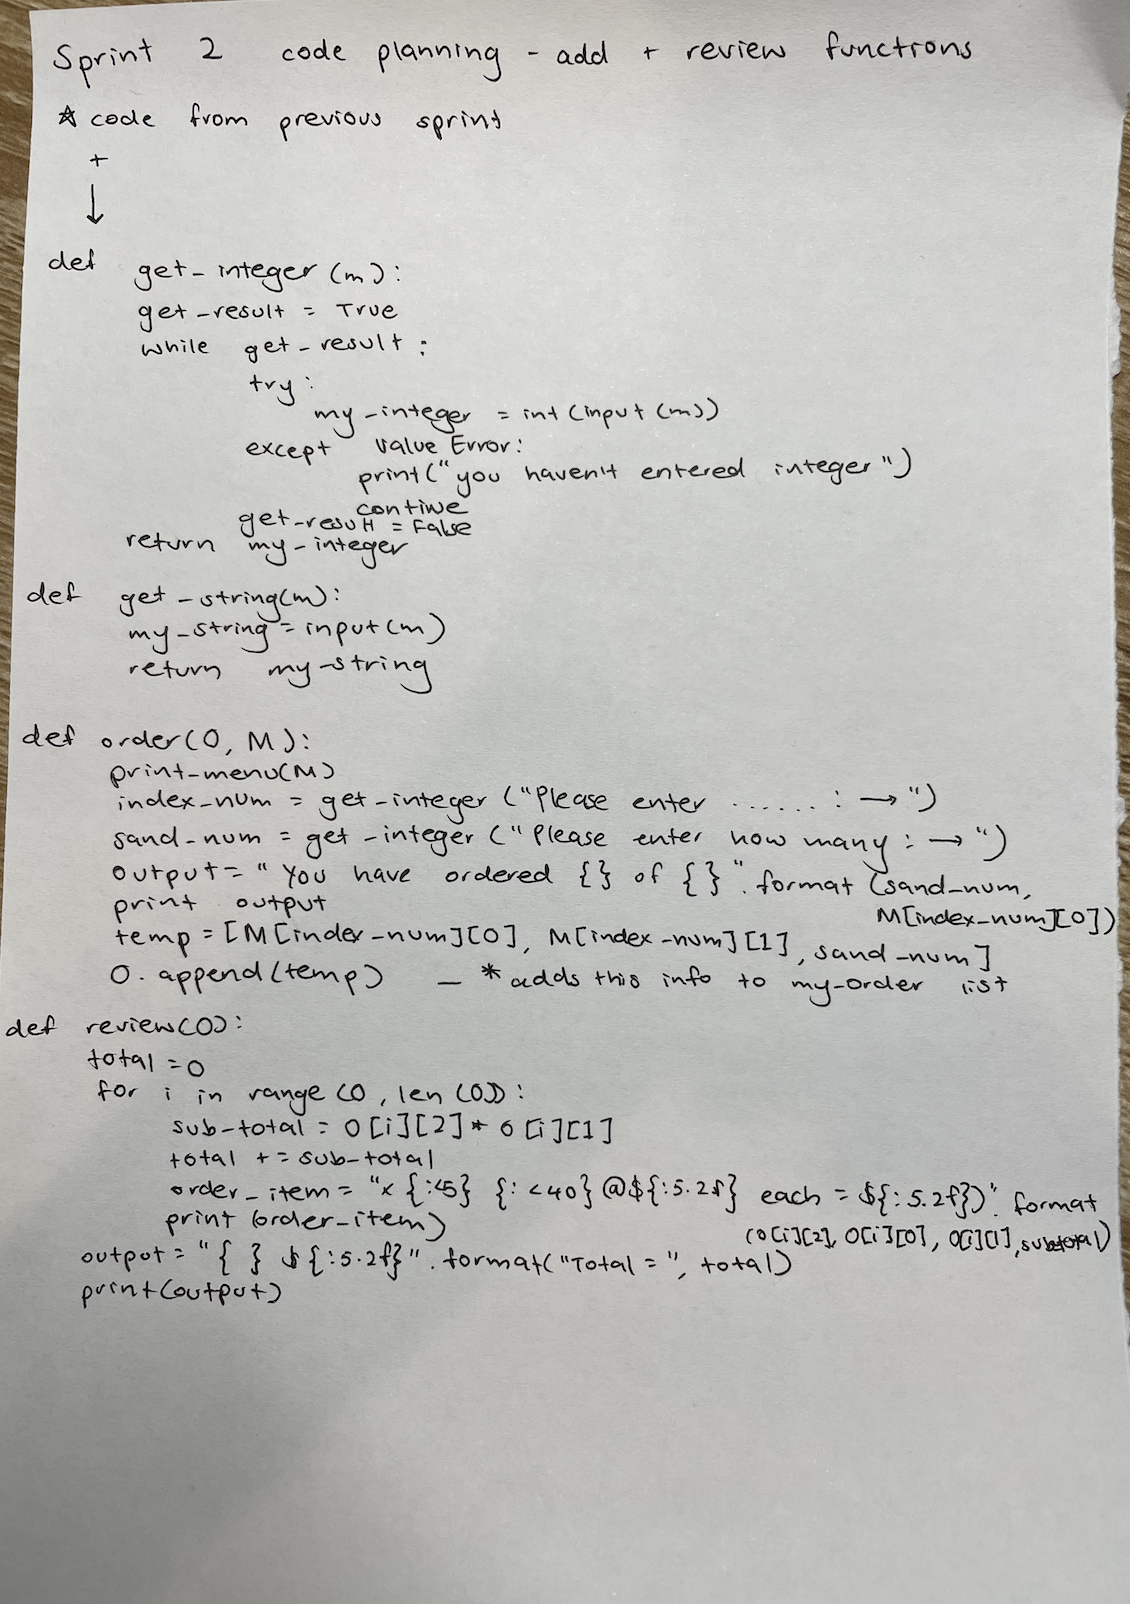 Sprint 2 code planning - add + review functions
* code from previous sprint
+
↓
def get_integer (m):
get_result = True
while get_result :
try:
my_integer = int(input(m))
except Value Error:
print("you haven't entered integer")
continue
get_result = False
return my_integer
def get_string(m):
my_string = input(m)
return my_string
def order(O, M):
print_menu(M)
index_num = get_integer ("Please enter ...... : →")
sand_num = get_integer ("Please enter how many : → ")
output = "You have ordered {} of {}".format (sand_num,
M[index_num][0])
print output
temp = [M[index_num][0], M[index_num][1], sand_num]
O.append(temp) - * adds this info to my-order list
def review(O):
total = 0
for i in range (0, len(O)):
sub_total = O[i][2] * O[i][1]
total += sub_total
order_item = "x {:<5} {:<40} @${:5.2f} each = ${:5.2f})".format
(O[i][2], O[i][0], O[i][1], subtotal)
print (order_item)
output = "{ } ${:5.2f}".format("Total = ", total)
print(output)